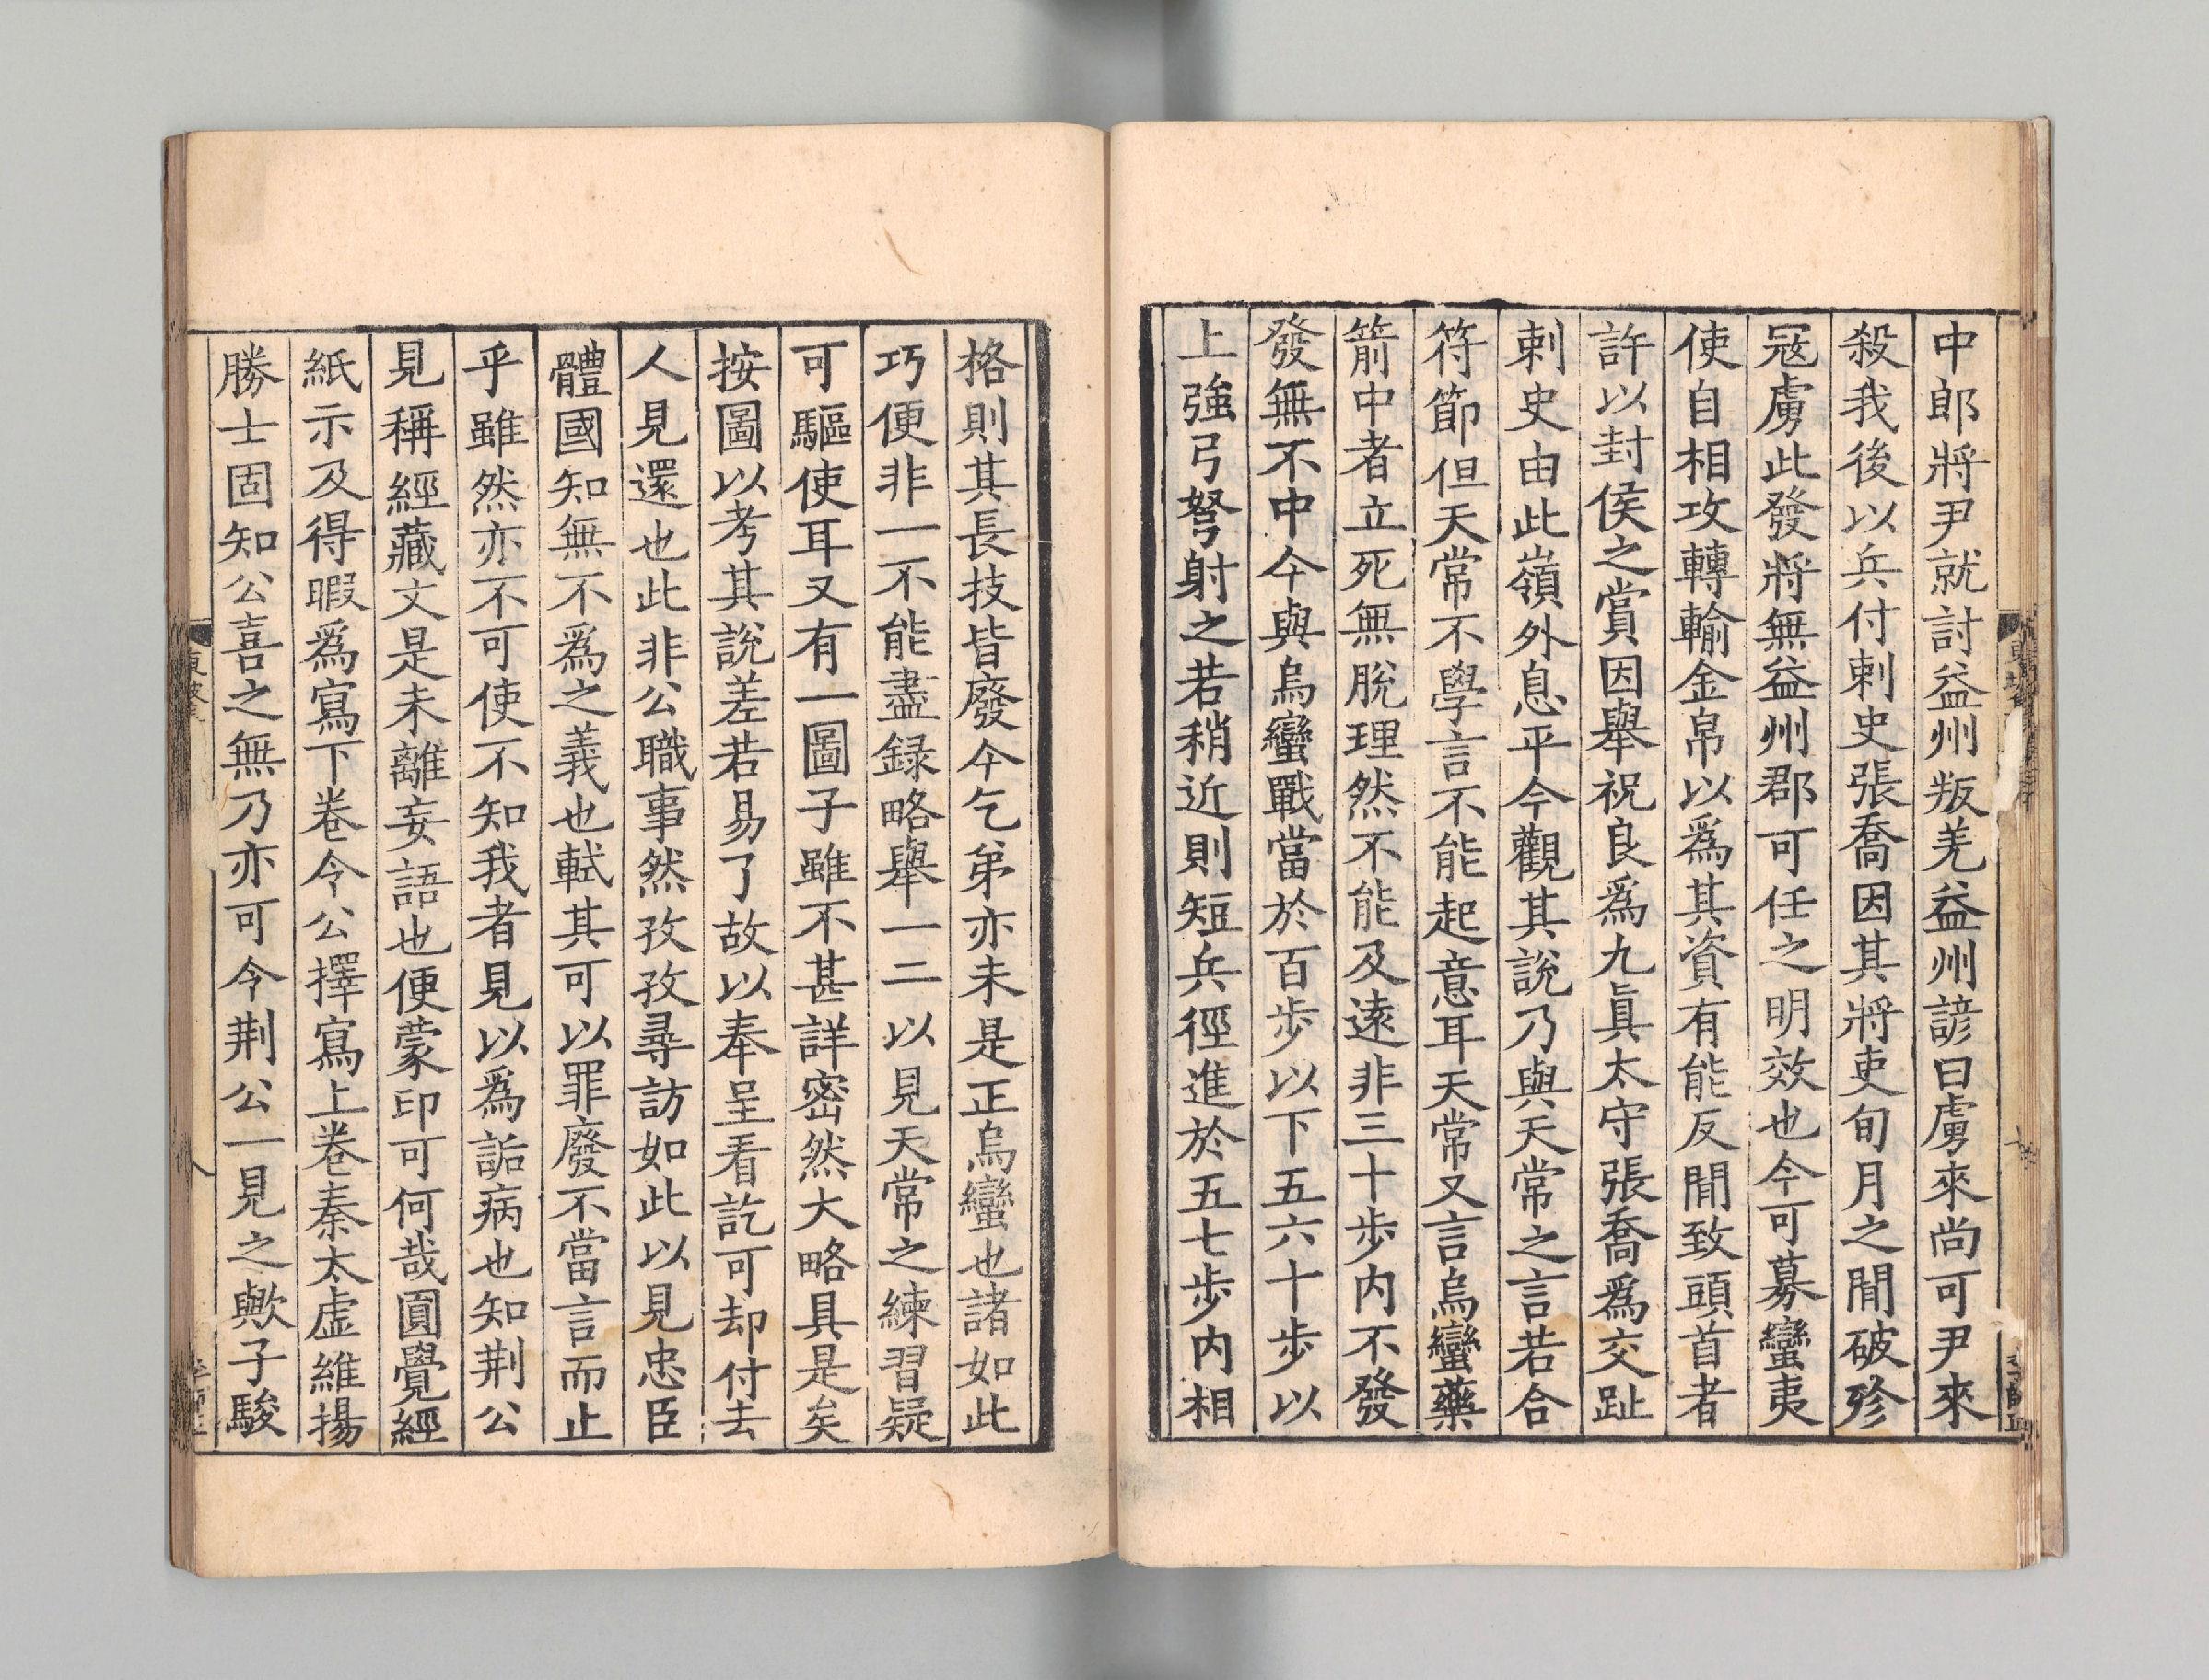 中郎將尹就討益州叛羌益州諺曰虜來尚可尹來
殺我後以兵付剌史張喬因其將吏旬月之間破殄
冦虜此發將無益州郡可任之明效也今可募蠻夷
使自相攻轉輸金帛以爲其資有能反間致頭首者
許以封侯之賞因舉祝良爲九眞太守張喬爲交趾
剌史由此嶺外息平今觀其說乃與天常之言若合
符節但天常不學言不能起意耳天常又言烏蠻藥
箭中者立死無脫理然不能及遠非三十步内不發
發無不中今與烏蠻戰當於百步以下五六十步以
上強弓弩射之若稍近則短兵徑進於五七步内相
格則其長技皆廢今乞弟亦未是正烏蠻也諸如此
巧便非一不能盡録略舉一二以見天常之練習疑
可驅使耳又有一圖子雖不甚詳密然大略具是矣
按圖以考其說差若易了故以奉呈看訖可却付去
人見還也此非公職事然孜孜尋訪如此以見忠臣
體國知無不爲之義也軾其可以罪廢不當言而止
乎雖然亦不可使不知我者見以爲詬病也知荆公
見稱經藏文是未離妄語也便蒙印可何哉圓覺經
紙示及得暇爲寫下巻令公擇寫上巻秦太虛維揚
勝士固知公喜之無乃亦可令荆公一見之歟子駿